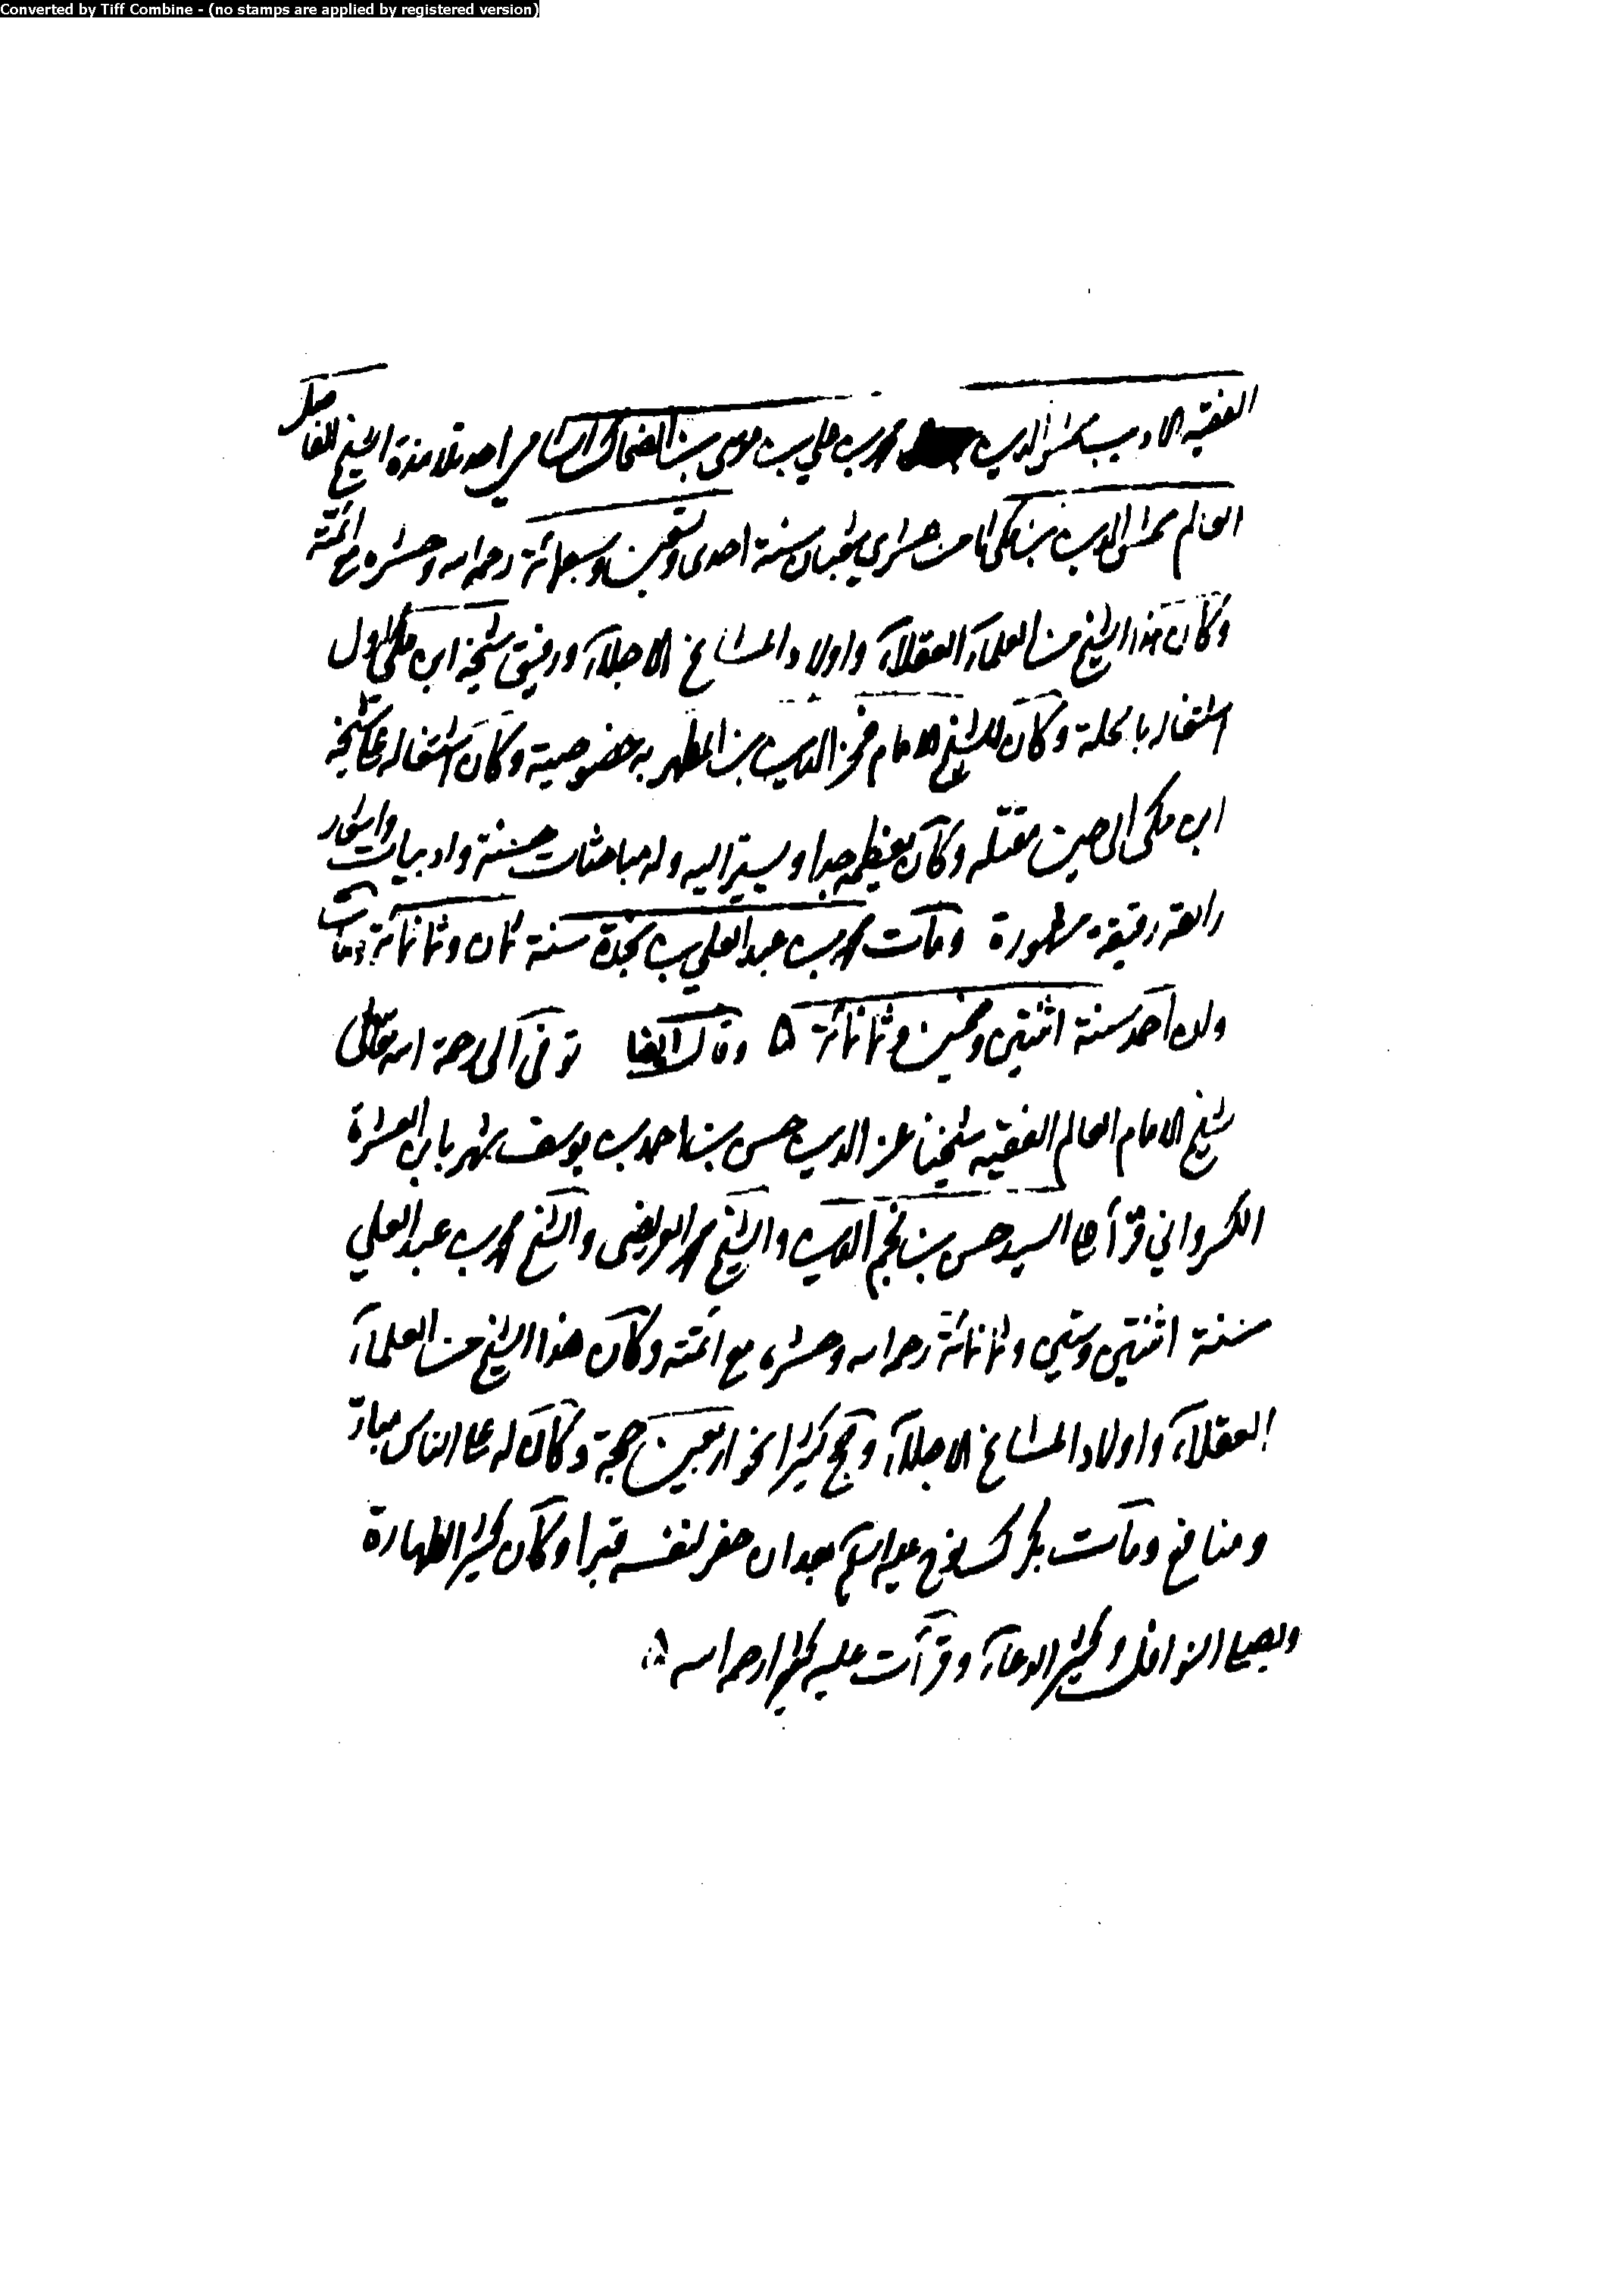 Converted by Tiff Combine - (no stamps are applied by registered version)
الفقيه الاديب شمس الدين محمد بن علي بن موسى بن الضحاك الشامي احد تلامذة الشيخ الفاضل
العالم شمس الدين بن مكي ثامن عشري شعبان سنة احدى وتسعين وسبعمائة رحمه الله وحشره مع ائمته
وكان هذا الشيخ من العلماء العقلاء واولاد المشائخ الاجلاء ورفيق شيخه ابن مكي اول
اشتغاله بالحلة وكان للشيخ الامام فخر الدين بن المطهر به خصوصية وكان اشتغاله على شيخه
ابن مكي الى حين مقتله وكان يعظمه جدا ويشير اليه وله مباحثات حسنة وادبيات واشعار
رائعة رقيقة مشهورة ومات محمد بن عبد العلي بن نجدة سنة ثمان وثمانمائة ومات
ولده احمد سنة اثنتين وخمسين وثمانمائة ۵ وقال ايضا توفى الى رحمة الله تعالى
شيخ الامام العالم الفقيه شيخنا عز الدين حسن بن احمد بن يوسف شهر بابن العشرة
الكسرواني قرأ على السيد حسن بن نجم الدين والشيخ محمد العريضى والشيخ محمد بن عبد العلي
سنة اثنتين وستين وثمانمائة رحمه الله وحشره مع ائمته وكان هذا الشيخ من العلماء
العقلاء واولاد المشائخ الاجلاء وحج كثيرا نحو اربعين حجة وكان له على الناس مبارّ
ومنافع ومات بكرك نوح عليه السلم بعد ان حفر لنفسه قبرا وكان كثير الطهارة
ويصلي النوافل وكثير الدعاء وقرأت عليه كثيرا رحمه الله ۵